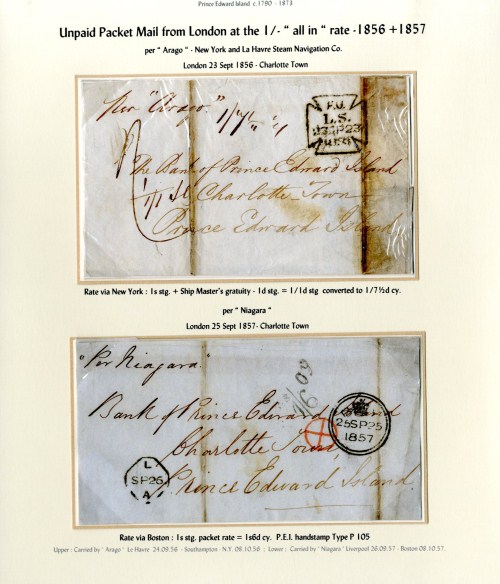 Prince Edward Island c.1790 - 1873
Unpaid Packet Mail from London at the 1/- “ all in “ rate -1856 +1857
per “ Arago “ - New York and La Havre Steam Navigation Co.
London 23 Sept 1856 - Charlotte Town
Per "Arago"
F.J.
L.S.
23SP23
1856
The Bank of Prince Edward Island
Charlotte Town
Prince Edward Island
Rate via New York : 1s stg. + Ship Master's gratuity - 1d stg. = 1/1d stg converted to 1/7½d cy.
per “ Niagara “
London 25 Sept 1857- Charlotte Town
"Per Niagara"
Bank of Prince Edward Island
25SP25
1857
Charlotte Town,
L
SP26
A
Prince Edward Island.
Rate via Boston : 1s stg. packet rate = 1s6d cy. P.E.I. handstamp Type P 105
Upper : Carried by ' Arago ' Le Havre 24.09.56 - Southampton - N.Y. 08.10.56 ; Lower : Carried by ' Niagara ' Liverpool 26.09.57 - Boston 08.10.57.